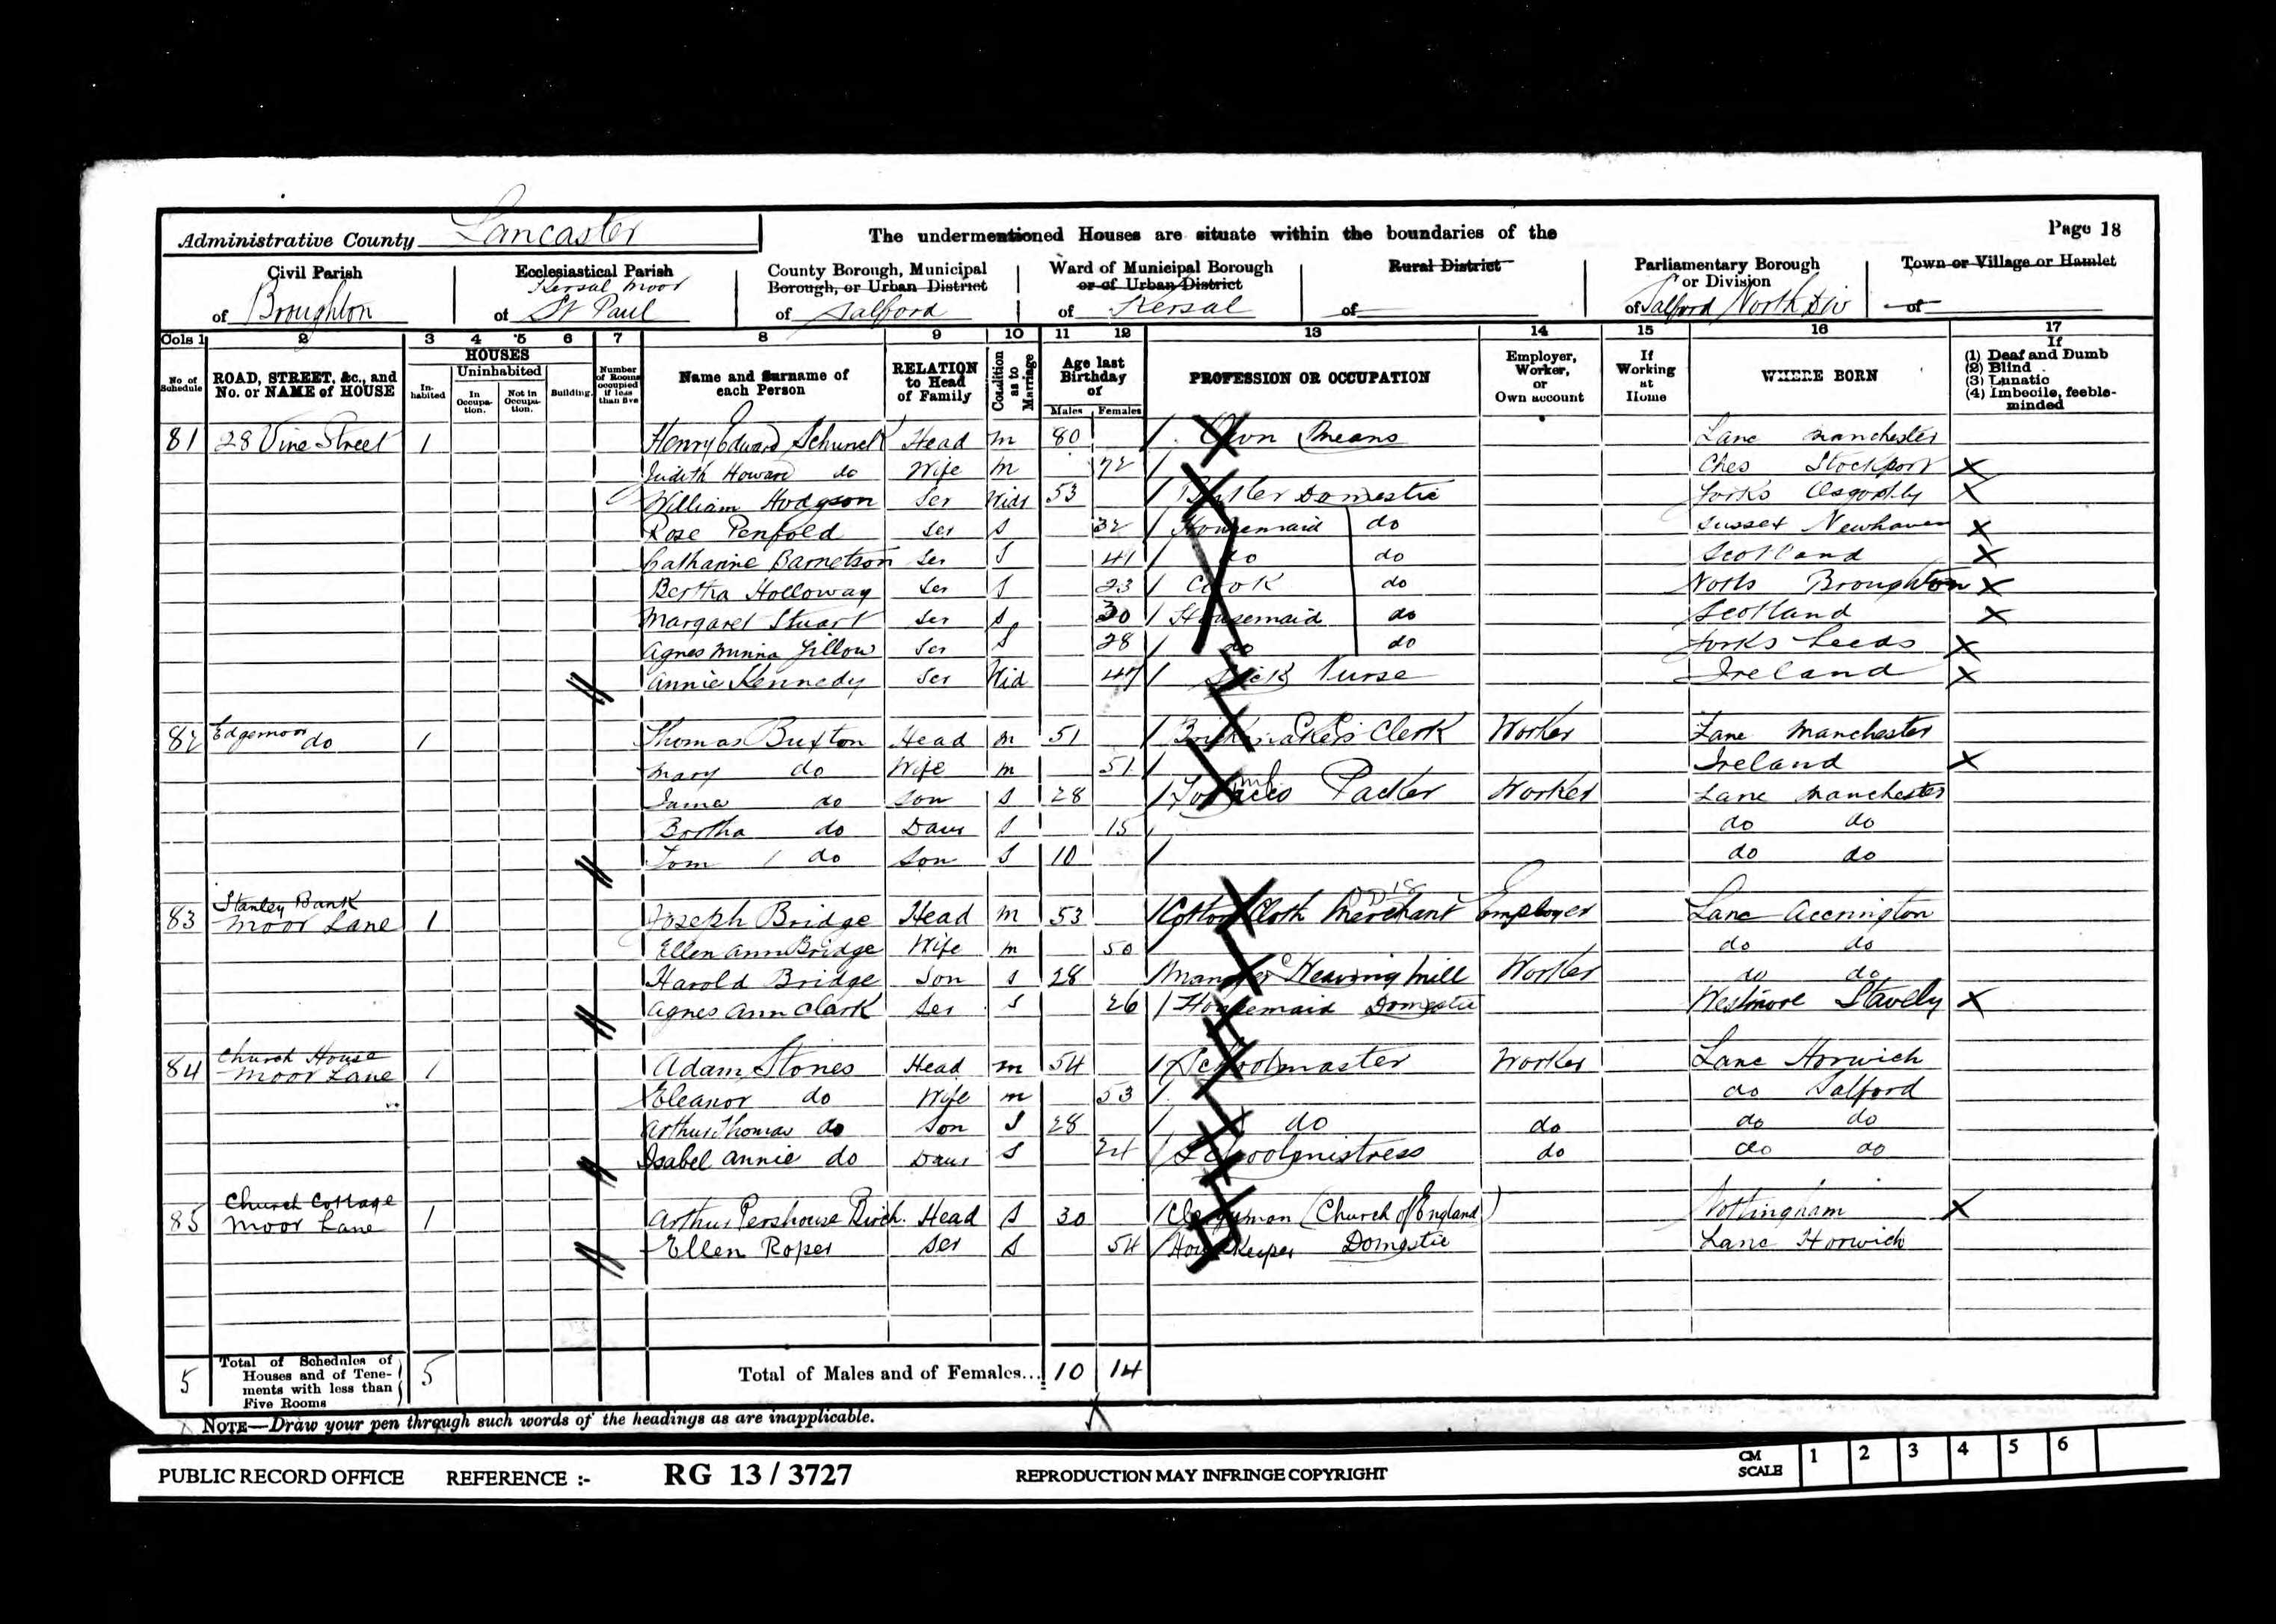 Page 18
Administrative County Lancaster The undermentioned Houses are situate within the boundaries of the
Civil Parish
of Broughton
Ecclesiastical Parish
Kersal Moor
of St Paul
County Borough, Municipal
Borough, or Urban District
of Salford
Ward of Municipal Borough
or of Urban District
of Kersal
Rural District
of
Parliamentary Borough
or Division
of Salford North Div
Town or Village or Hamlet
of
Cols 1 2 3 4 5 6 7 8 9 10 11 12 13 14 15 16 17
No of Schedule
ROAD, STREET, &c., and No. or NAME of HOUSE
HOUSES
In-habited
Uninhabited
In Occupa-tion.
Not in Occupa-tion.
Building.
Number of Rooms occupied if less than five
Name and Surname of each Person
RELATION to Head of Family
Condition as to Marriage
Age last Birthday of
Males Females
PROFESSION OR OCCUPATION
Employer, Worker, or Own account
If Working at Home
WHERE BORN
If
(1) Deaf and Dumb
(2) Blind
(3) Lunatic
(4) Imbecile, feeble-minded
81 28 Vine Street 1 Henry Edward Schunck Head M 80 Own Means Lanc Manchester
Judith Howard do Wife M 72 Ches Stockport
William Hodgson Ser Widr 53 Butler Domestic Yorks Osgodby
Rose Penfold Ser S 32 Housemaid do Sussex Newhaven
Catharine Barnetson Ser S 41 do do Scotland
Bertha Holloway Ser S 23 Cook do Notts Broughton
Margaret Stuart Ser S 30 Housemaid do Scotland
Agnes Minna Ser S 28 do do Yorks Leeds
Annie Kennedy Ser Wid 47 Sick Nurse Ireland
82 Edgemoor do 1 Thomas Buxton Head M 51 Brickmakers Clerk Worker Lanc Manchester
Mary do Wife M 51 Ireland
James do Son S 28 Packer Worker Lanc Manchester
Bertha do Daur S 15 do do
Tom do Son S 10 do do
83 Stanley Bank
Moor Lane 1 Joseph Bridge Head M 53 Cotton Cloth Merchant Employer Lanc Accrington
Ellen Ann Bridge Wife M 50 do do
Harold Bridge Son S 28 Manager Weaving Mill Worker do do
Agnes Ann Clark Ser S 26 Housemaid Domestic Westmore Stavely
84 Church House
Moor Lane 1 Adam Stones Head M 54 Schoolmaster Worker Lanc Horwich
Eleanor do Wife M 53 do Salford
Arthur Thomas do Son S 28 do do do do
Isabel Annie do Daur S 24 Schoolmistress do do do
85 Church Cottage
Moor Lane 1 Arthur Pershouse Birch. Head S 30 Clergyman (Church of England) Nottingham
Ellen Roper Ser S 54 Housekeeper Domestic Lanc Horwich
5 Total of Schedules of Houses and of Tene-ments with less than Five Rooms 5 Total of Males and of Females... 10 14
NOTE—Draw your pen through such words of the headings as are inapplicable.
PUBLIC RECORD OFFICE REFERENCE :- RG 13 / 3727 REPRODUCTION MAY INFRINGE COPYRIGHT CM SCALE 1 2 3 4 5 6